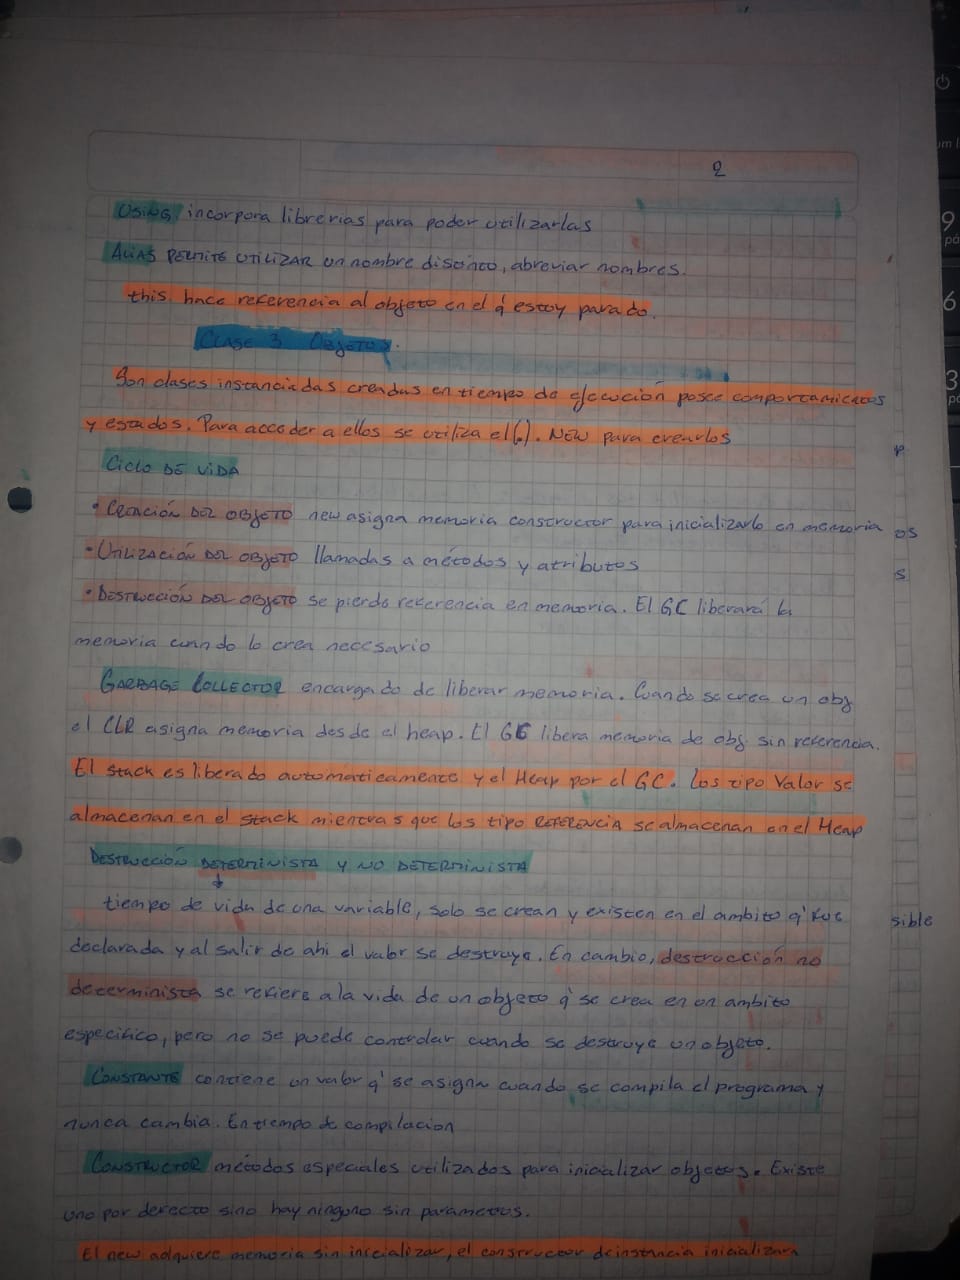 2
USING incorpora librerias para poder utilizarlas
ALIAS PERMITE UTILIZAR un nombre distinto, abreviar nombres.
this hace referencia al objeto en el q' estoy parado.
CLASE 3 OBJETOS.
Son clases instanciadas creadas en tiempo de ejecución posee comportamientos
y estados. Para acceder a ellos se utiliza el (.). NEW para crearlos
CICLO DE VIDA
• CREACIÓN DEL OBJETO new asigna memoria constructor para inicializarlo en memoria
• UTILIZACIÓN DEL OBJETO llamadas a métodos y atributos
• DESTRUCCIÓN DEL OBJETO se pierde referencia en memoria. El GC liberará la
memoria cuando lo crea necesario
GARBAGE COLLECTOR encargado de liberar memoria. Cuando se crea un obj
el CLR asigna memoria desde el heap. El GC libera memoria de obj sin referencia.
El stack es liberado automaticamente y el Heap por el GC. Los tipo Valor se
almacenan en el stack mientras que los tipo REFERENCIA se almacenan en el Heap
DESTRUCCIÓN DETERMINISTA Y NO DETERMINISTA
tiempo de vida de una variable, solo se crean y existen en el ambito q' fue
declarada y al salir de ahi el valor se destruye. En cambio, destrucción no
determinista se refiere a la vida de un objeto q' se crea en un ambito
especifico, pero no se puede controlar cuando se destruye un objeto.
CONSTANTE contiene un valor q' se asigna cuando se compila el programa y
nunca cambia. En tiempo de compilacion
CONSTRUCTOR métodos especiales utilizados para inicializar objetos. Existe
uno por defecto sino hay ninguno sin parametros.
El new adquiere memoria sin inicializar, el constructor de instancia inicializara
os
s
sible
9
6
3